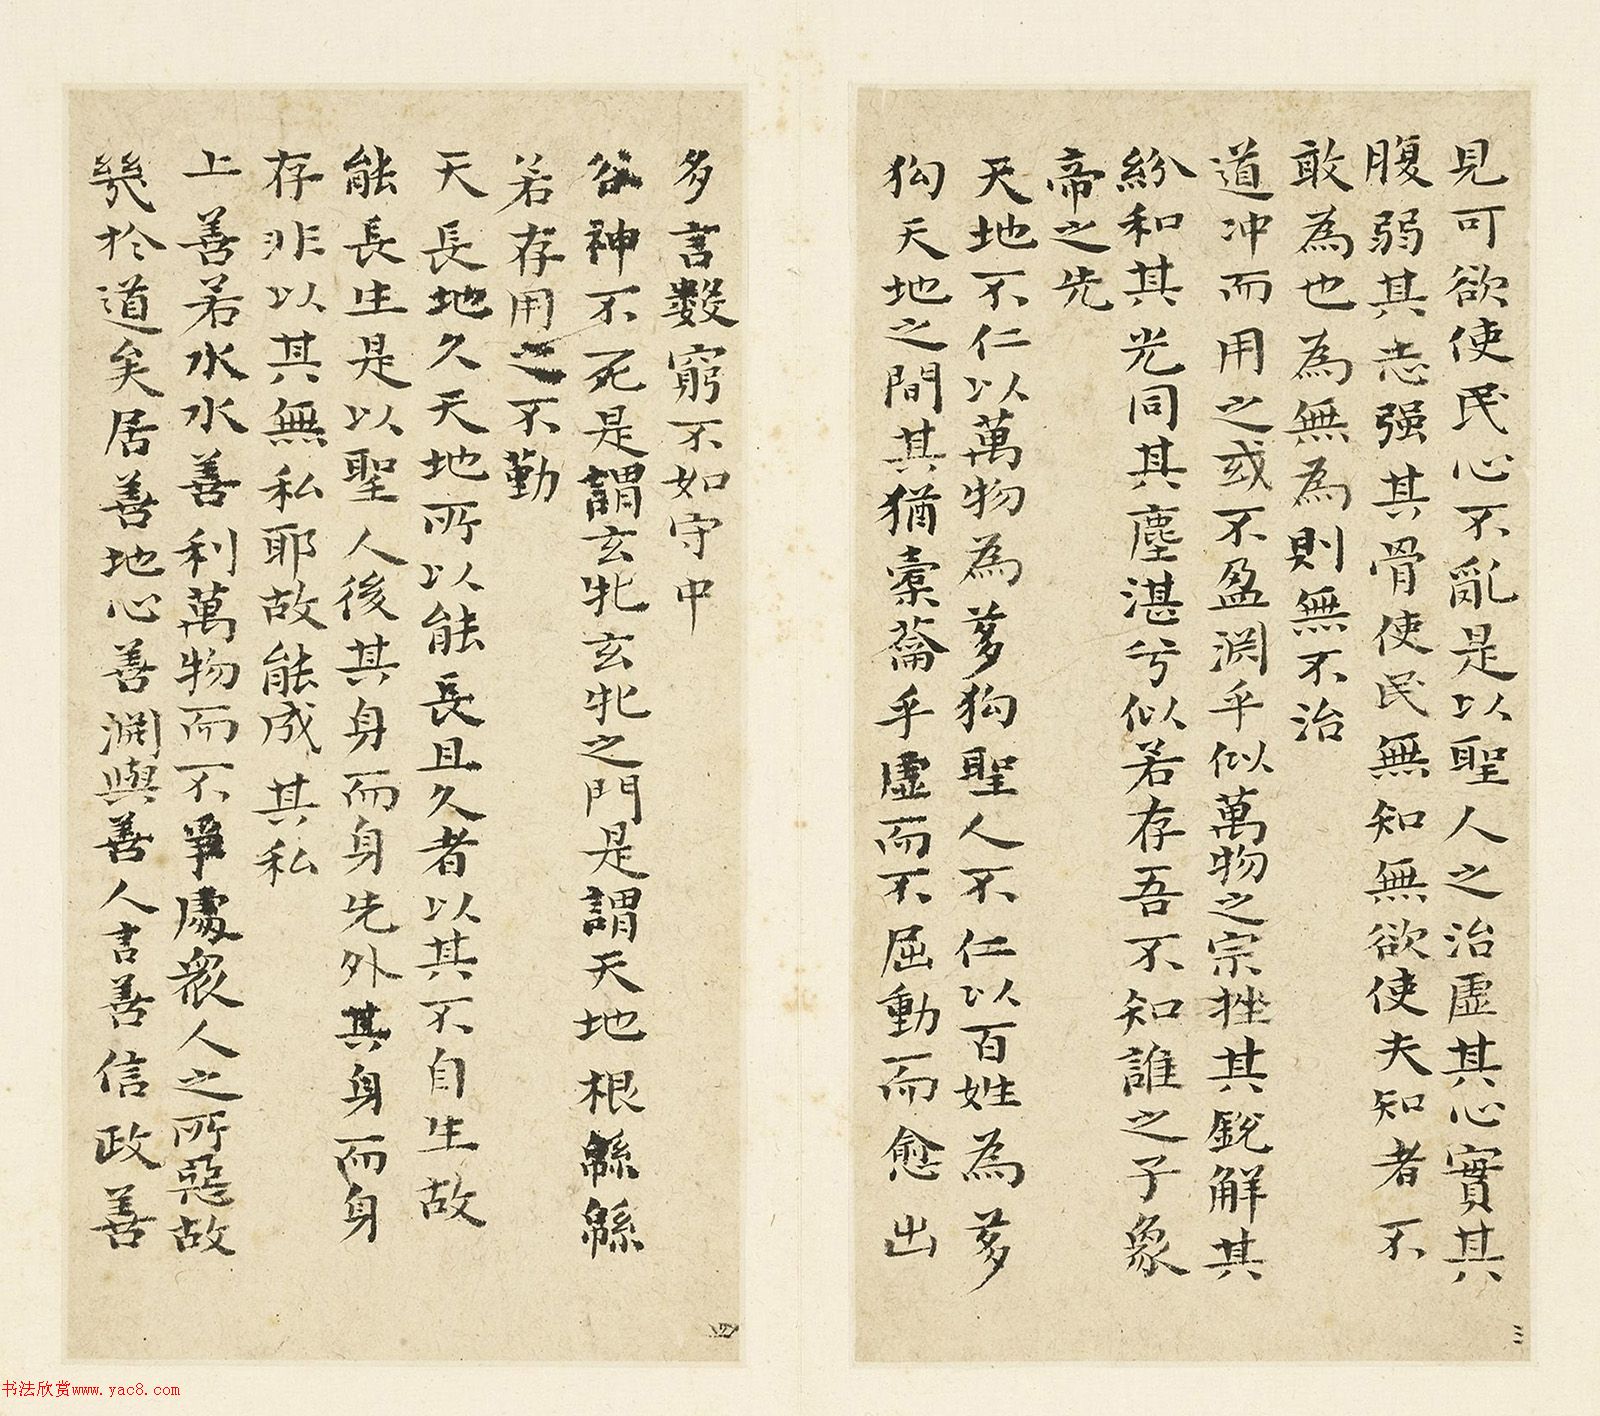 見可欲使民心不亂是以聖人之治虛其心實其
腹弱其志强其骨使民無知無欲使夫知者不
敢為也為無為則無不治
道冲而用之或不盈淵乎似萬物之宗挫其銳解其
紛和其光同其塵湛兮似若存吾不知誰之子象
帝之先
天地不仁以萬物為芻狗聖人不仁以百姓為芻
狗天地之間其猶橐籥乎虛而不屈動而愈出
三
多言數窮不如守中
谷神不死是謂玄牝玄牝之門是謂天地根緜緜
若存用之不勤
天長地久天地所以能長且久者以其不自生故
能長生是以聖人後其身而身先外其身而身
存非以其無私耶故能成其私
上善若水水善利萬物而不爭處衆人之所惡故
幾於道矣居善地心善淵與善人言善信政善
四
书法欣赏www.yac8.com